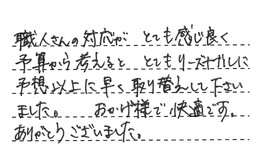 職人さんの対応が とても感じ良く
予算から考えると とてもリーズナブルに
予想以上に早く取り替えして下さい
ました。 おかげ様で快適です。
ありがとうございました。